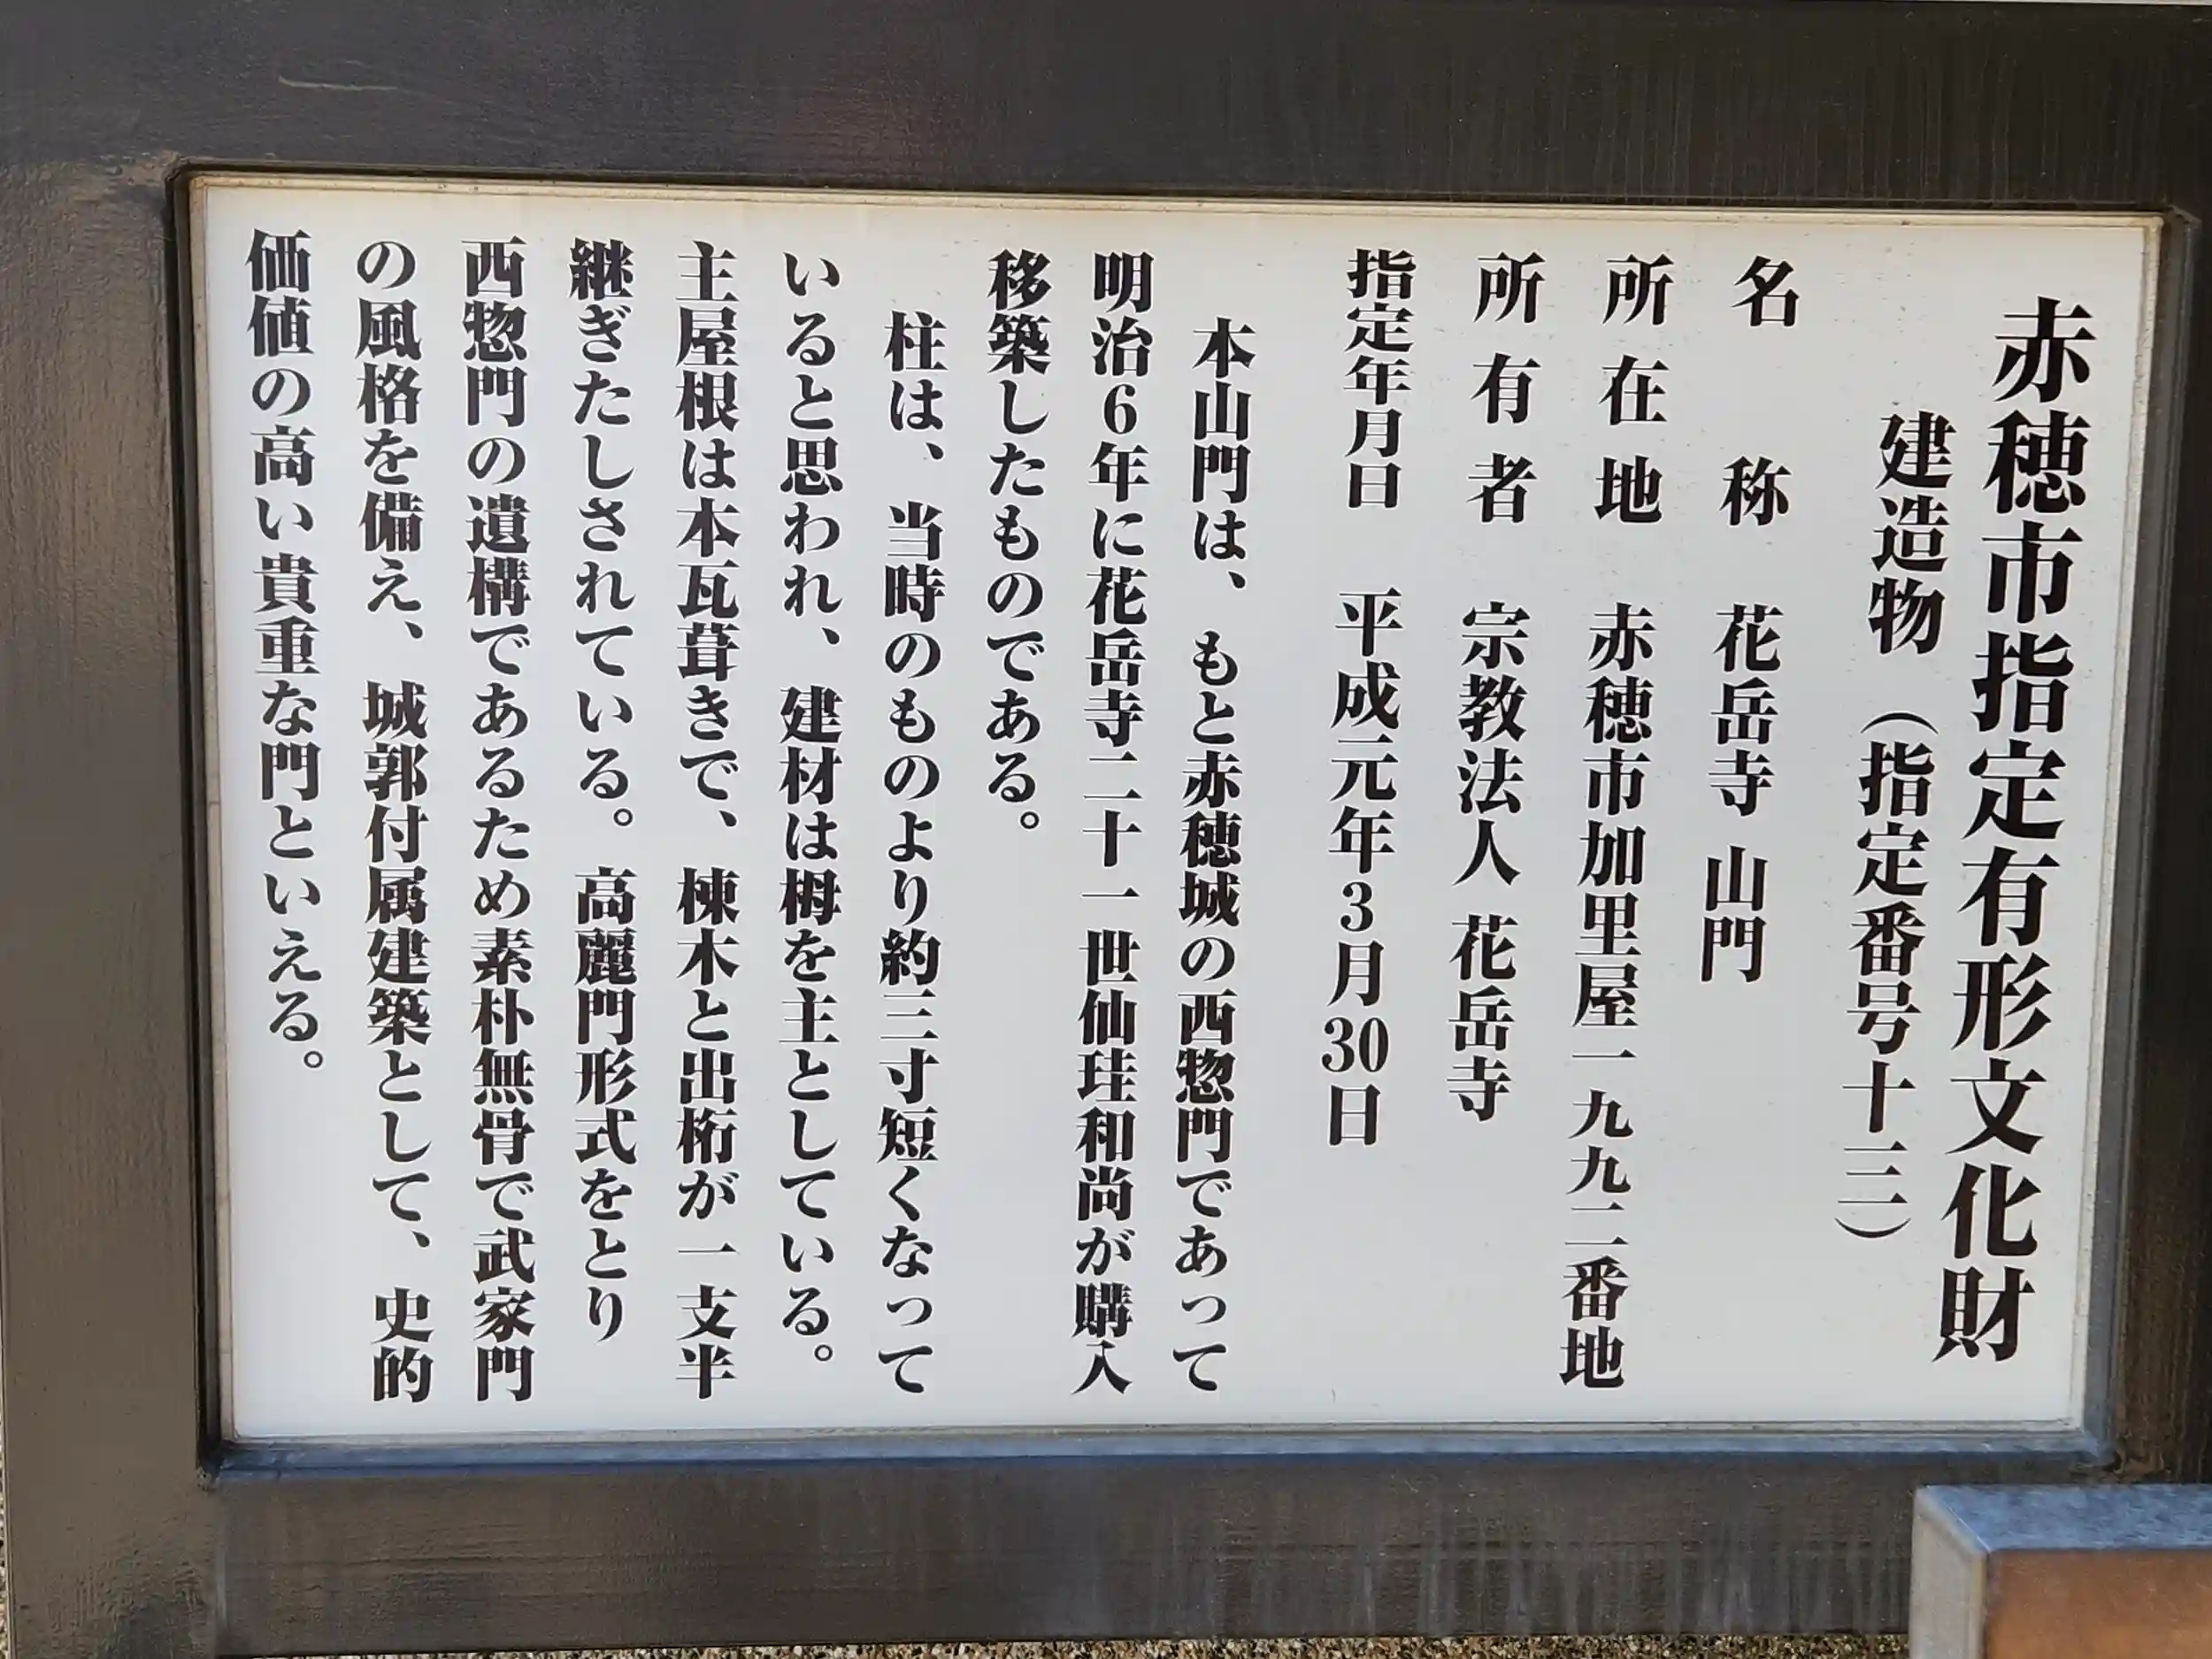 赤穂市指定有形文化財
建造物（指定番号十三）
名称 花岳寺 山門
所在地 赤穂市加里屋一九九二番地
所有者 宗教法人 花岳寺
指定年月日 平成元年3月30日
本山門は、もと赤穂城の西惣門であって
明治6年に花岳寺二十一世仙珪和尚が購入
移築したものである。
柱は、当時のものより約三寸短くなって
いると思われ、建材は栂を主としている。
主屋根は本瓦葺きで、棟木と出桁が一支半
継ぎたしされている。高麗門形式をとり
西惣門の遺構であるため素朴無骨で武家門
の風格を備え、城郭付属建築として、史的
価値の高い貴重な門といえる。